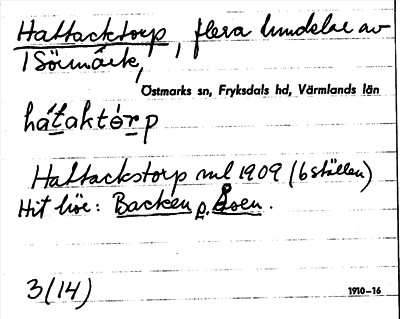 Hattacktorp, flera hundelar av
1 Sörmark,
Östmarks sn, Fryksdals hd, Värmlands län
hátaktòrp
Hattackstorp ml 1909 (6 ställen)
Hit hör: Backen o. Åsen.
3(14)
1910-16